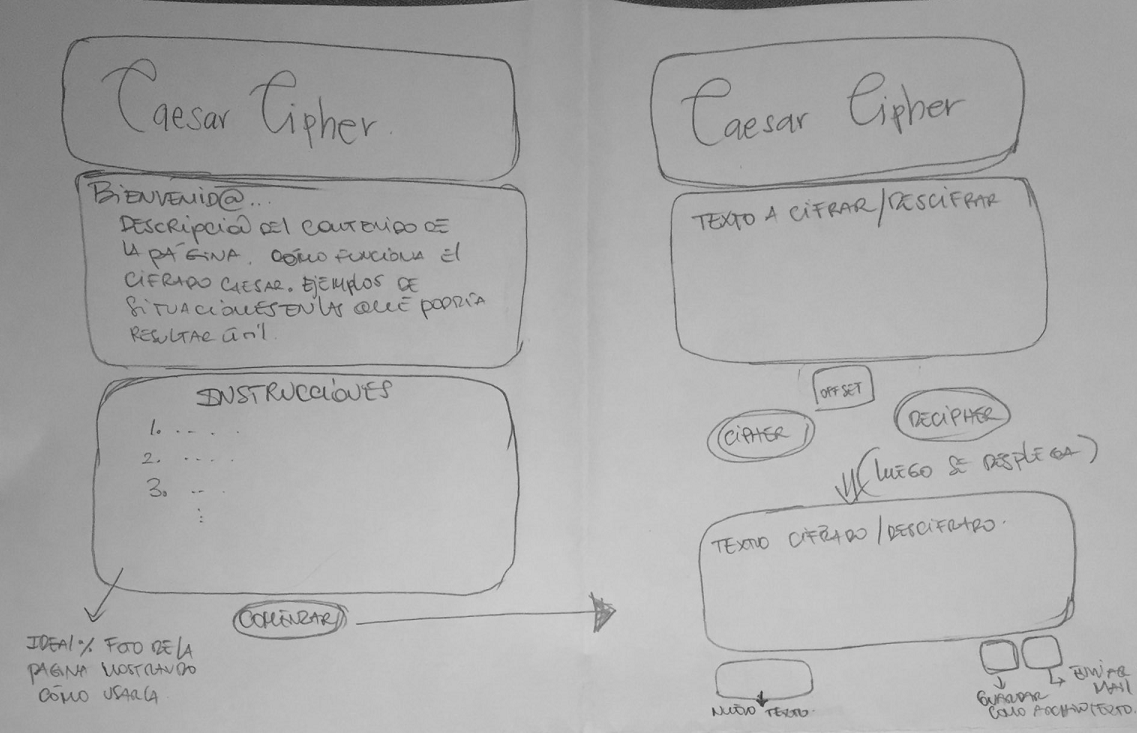 Caesar Cipher.
BIENVENID@...
DESCRIPCIÓN DEL CONTENIDO DE
LA PÁGINA. CÓMO FUNCIONA EL
CIFRADO CAESAR. EJEMPLOS DE
SITUACIONES EN LAS QUE PODRÍA
RESULTAR ÚTIL.
INSTRUCCIONES
1. .. . .
2. .....
3. .. .
COMENZAR
IDEAL % FOTO DE LA
PÁGINA MOSTRANDO
CÓMO USARLA
Caesar Cipher
TEXTO A CIFRAR/DESCIFRAR
OFFSET
CIPHER
DECIPHER
(LUEGO SE DESPLEGA)
TEXTO CIFRADO/DESCIFRADO.
NUEVO TEXTO.
GUARDAR
COMO ARCHIVO TEXTO.
ENVIAR
MAIL